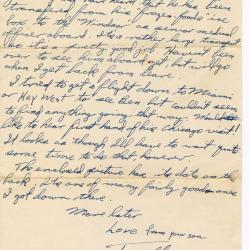 transferred from his 'frozen foods' ice
box to the Windsor as senior medical
officer aboard. It's a rather huge transport
so it's a pretty good job. Haven't been
over to see him aboard yet, but will go
when I get back from leave.
I tried to get a flight down to Miami
or Key West to see Ben but couldn't seem
to find anything going that way. Would
like to hear first hand of his Chicago visit!
It looks as though I'll have to wait quite
some time to do that, however.
The enclosed picture has its data on the
back. It's one of many fairly good ones
I got down there.
More later
Love from your son